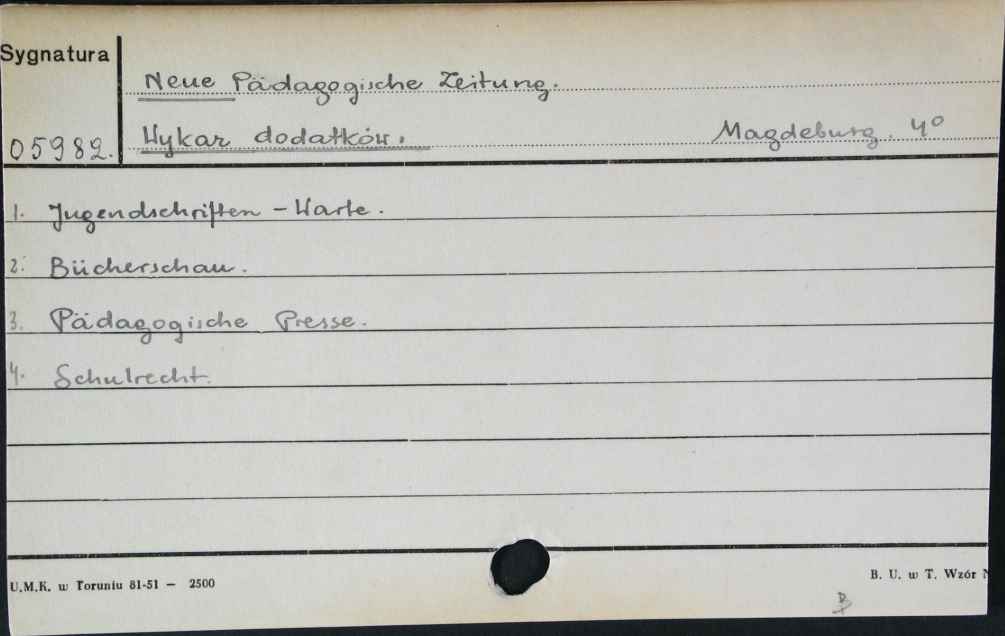 Sygnatura
Neue Pädagogische Zeitung.
05982.
Wykaz dodatków.
Magdeburg. 4°
1. Jugendschriften - Warte.
2. Bücherschau.
3. Pädagogische Presse.
4. Schulrecht.
U.M.K. w Toruniu 81-51 — 2500
B. U. w T. Wzór N
B